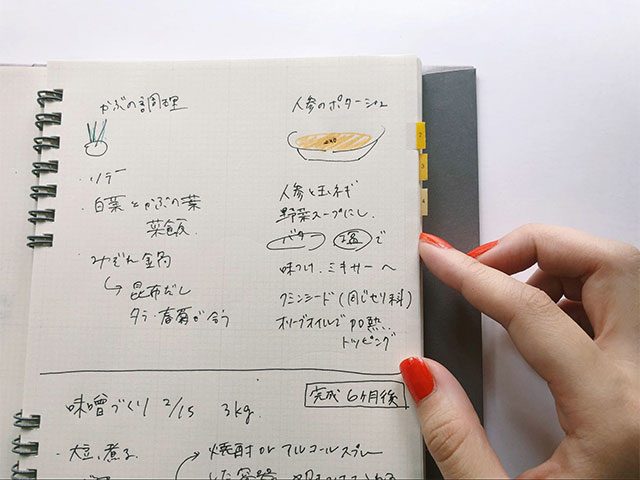 かぶの調理
・ソテー
・白菜とかぶの葉
菜飯
・みぞれ鍋
↳昆布だし
タラ・春菊が合う
人参のポタージュ
人参と玉ネギ
野菜スープにし、
バター 塩で
味つけ、ミキサーへ
クミンシード(同じセリ科)
オリーブオイルで加熱、
トッピング
味噌づくり 2/15 3kg.
完成6ヶ月後
・大豆、煮る
焼酎orアルコールスプレー
した容器